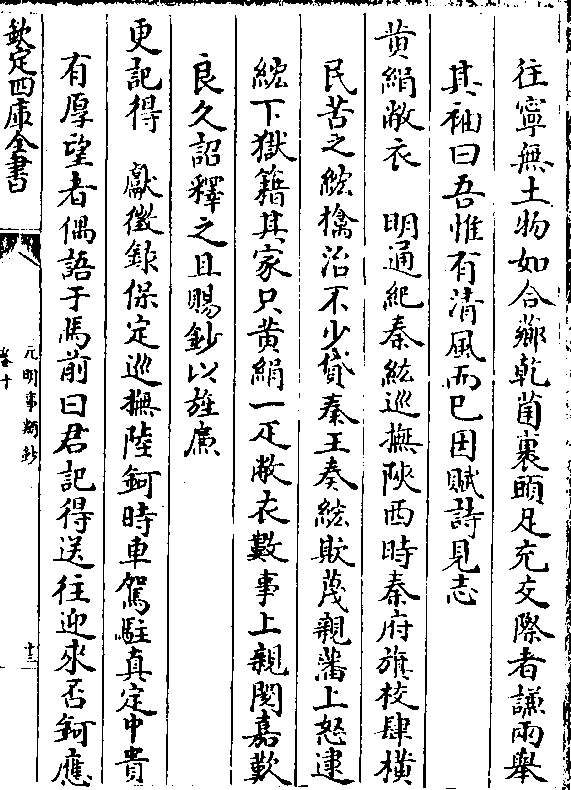 往寧無土物如合薌乾菌裹頤足充交際者謙兩舉
其袖曰吾惟有清風而已因賦詩見志
黄絹敝衣　明通紀秦紘巡撫陜西時秦府旗校肆横
民苦之紘擒治不少貸秦王奏紘欺蔑親藩上怒逮
紘下獄籍其家只黄絹一疋敝衣數事上親閲嘉歎
良久詔釋之且賜鈔以旌廉
更記得　獻徵錄保定巡撫陸鈳時車駕駐真定中貴
有厚望者偶語于馬前曰君記得送往迎來否鈳應
欽定四庫全書
元明事類鈔
卷十
十三